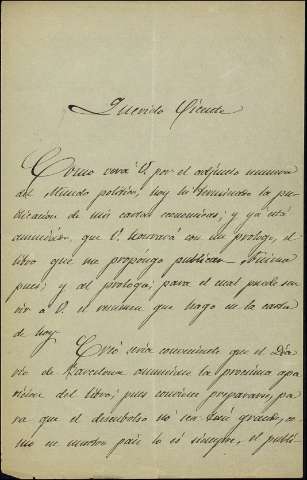 Querido Vicente
Como verá V. por el adjunto numero
del Mundo político, hoy he terminado la pu-
blicacion de mis cartas economicas; y ya está
anunciado, que V. honrará con un prologo, el
libro que me propongo publicar.
pues; y al prologo; para el cual puede ser-
vir á V. el resumen que hago en la carta
de hoy.
Creo seria conveniente que el Dia-
rio de Barcelona anunciara la procsima apa-
ricion del libro; pues conviene prepararse, pa-
ra que el desembolso no sea tan grande, co-
mo en nuestro pais lo es siempre, el publi-